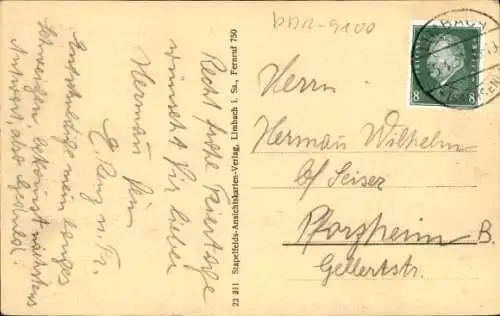 DDR-9100
Recht frohe Feiertage
wünscht Dir lieber
Hermann Dein
E. Renz u. Fr.
Entschuldige mein langes
Schweigen, bekommst nächstens
Antwort, also Geduld.
22 311 Stapelfelds-Ansichtskarten-Verlag, Limbach i. Sa., Fernruf 750
LIMBACH
8 8
Herrn
Hermann Wilhelm
b/ Seiser
Pforzheim B.
Gellertstr.